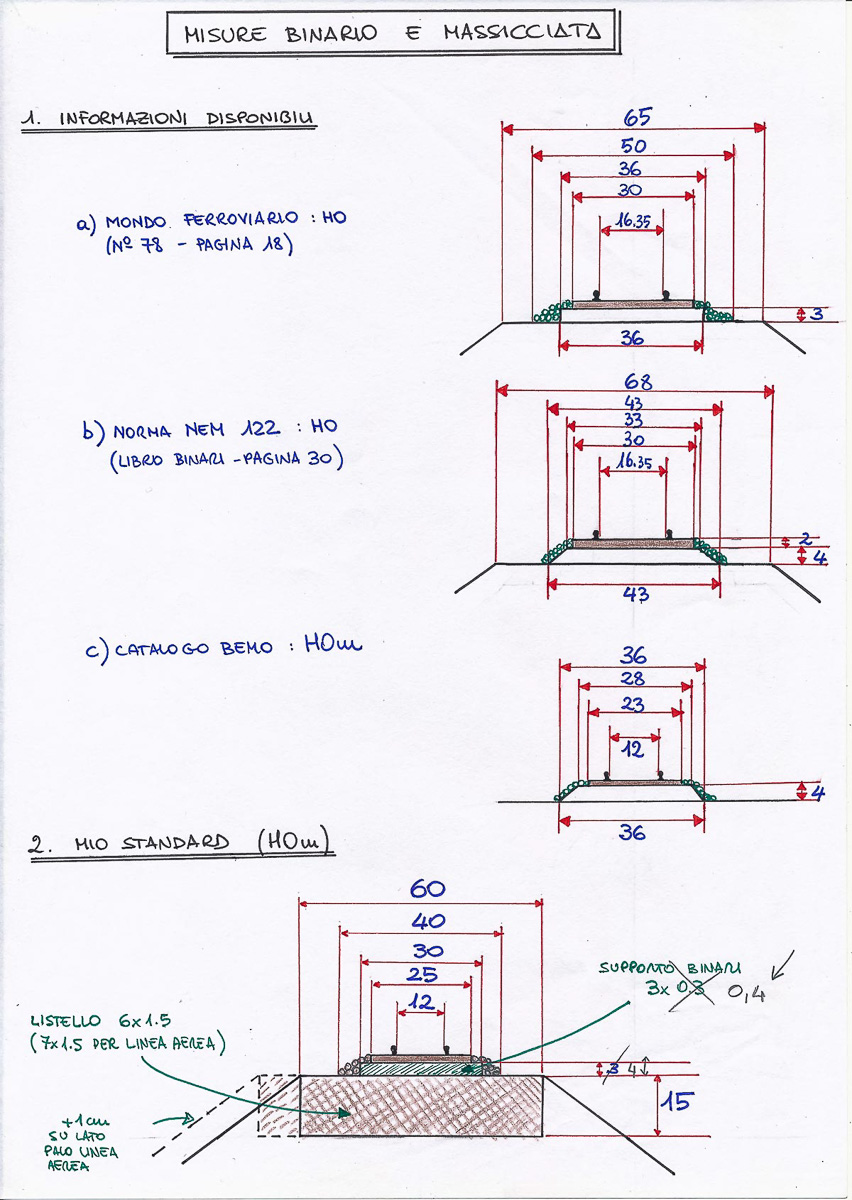 MISURE BINARIO E MASSICCIATA
1. INFORMAZIONI DISPONIBILI
a) MONDO FERROVIARIO : HO
(Nº 78 - PAGINA 18)
65
50
36
30
16.35
3
36
b) NORMA NEM 122 : HO
(LIBRO BINARI - PAGINA 30)
68
43
33
30
16.35
2
4
43
c) CATALOGO BEMO : HOm
36
28
23
12
4
36
2. MIO STANDARD (HOm)
60
40
30
25
12
SUPPORTO BINARI
3x 0.3 0,4
LISTELLO 6x1.5
(7x1.5 PER LINEA AEREA)
3 4
15
+1cm
SU LATO
PALO LINEA
AEREA